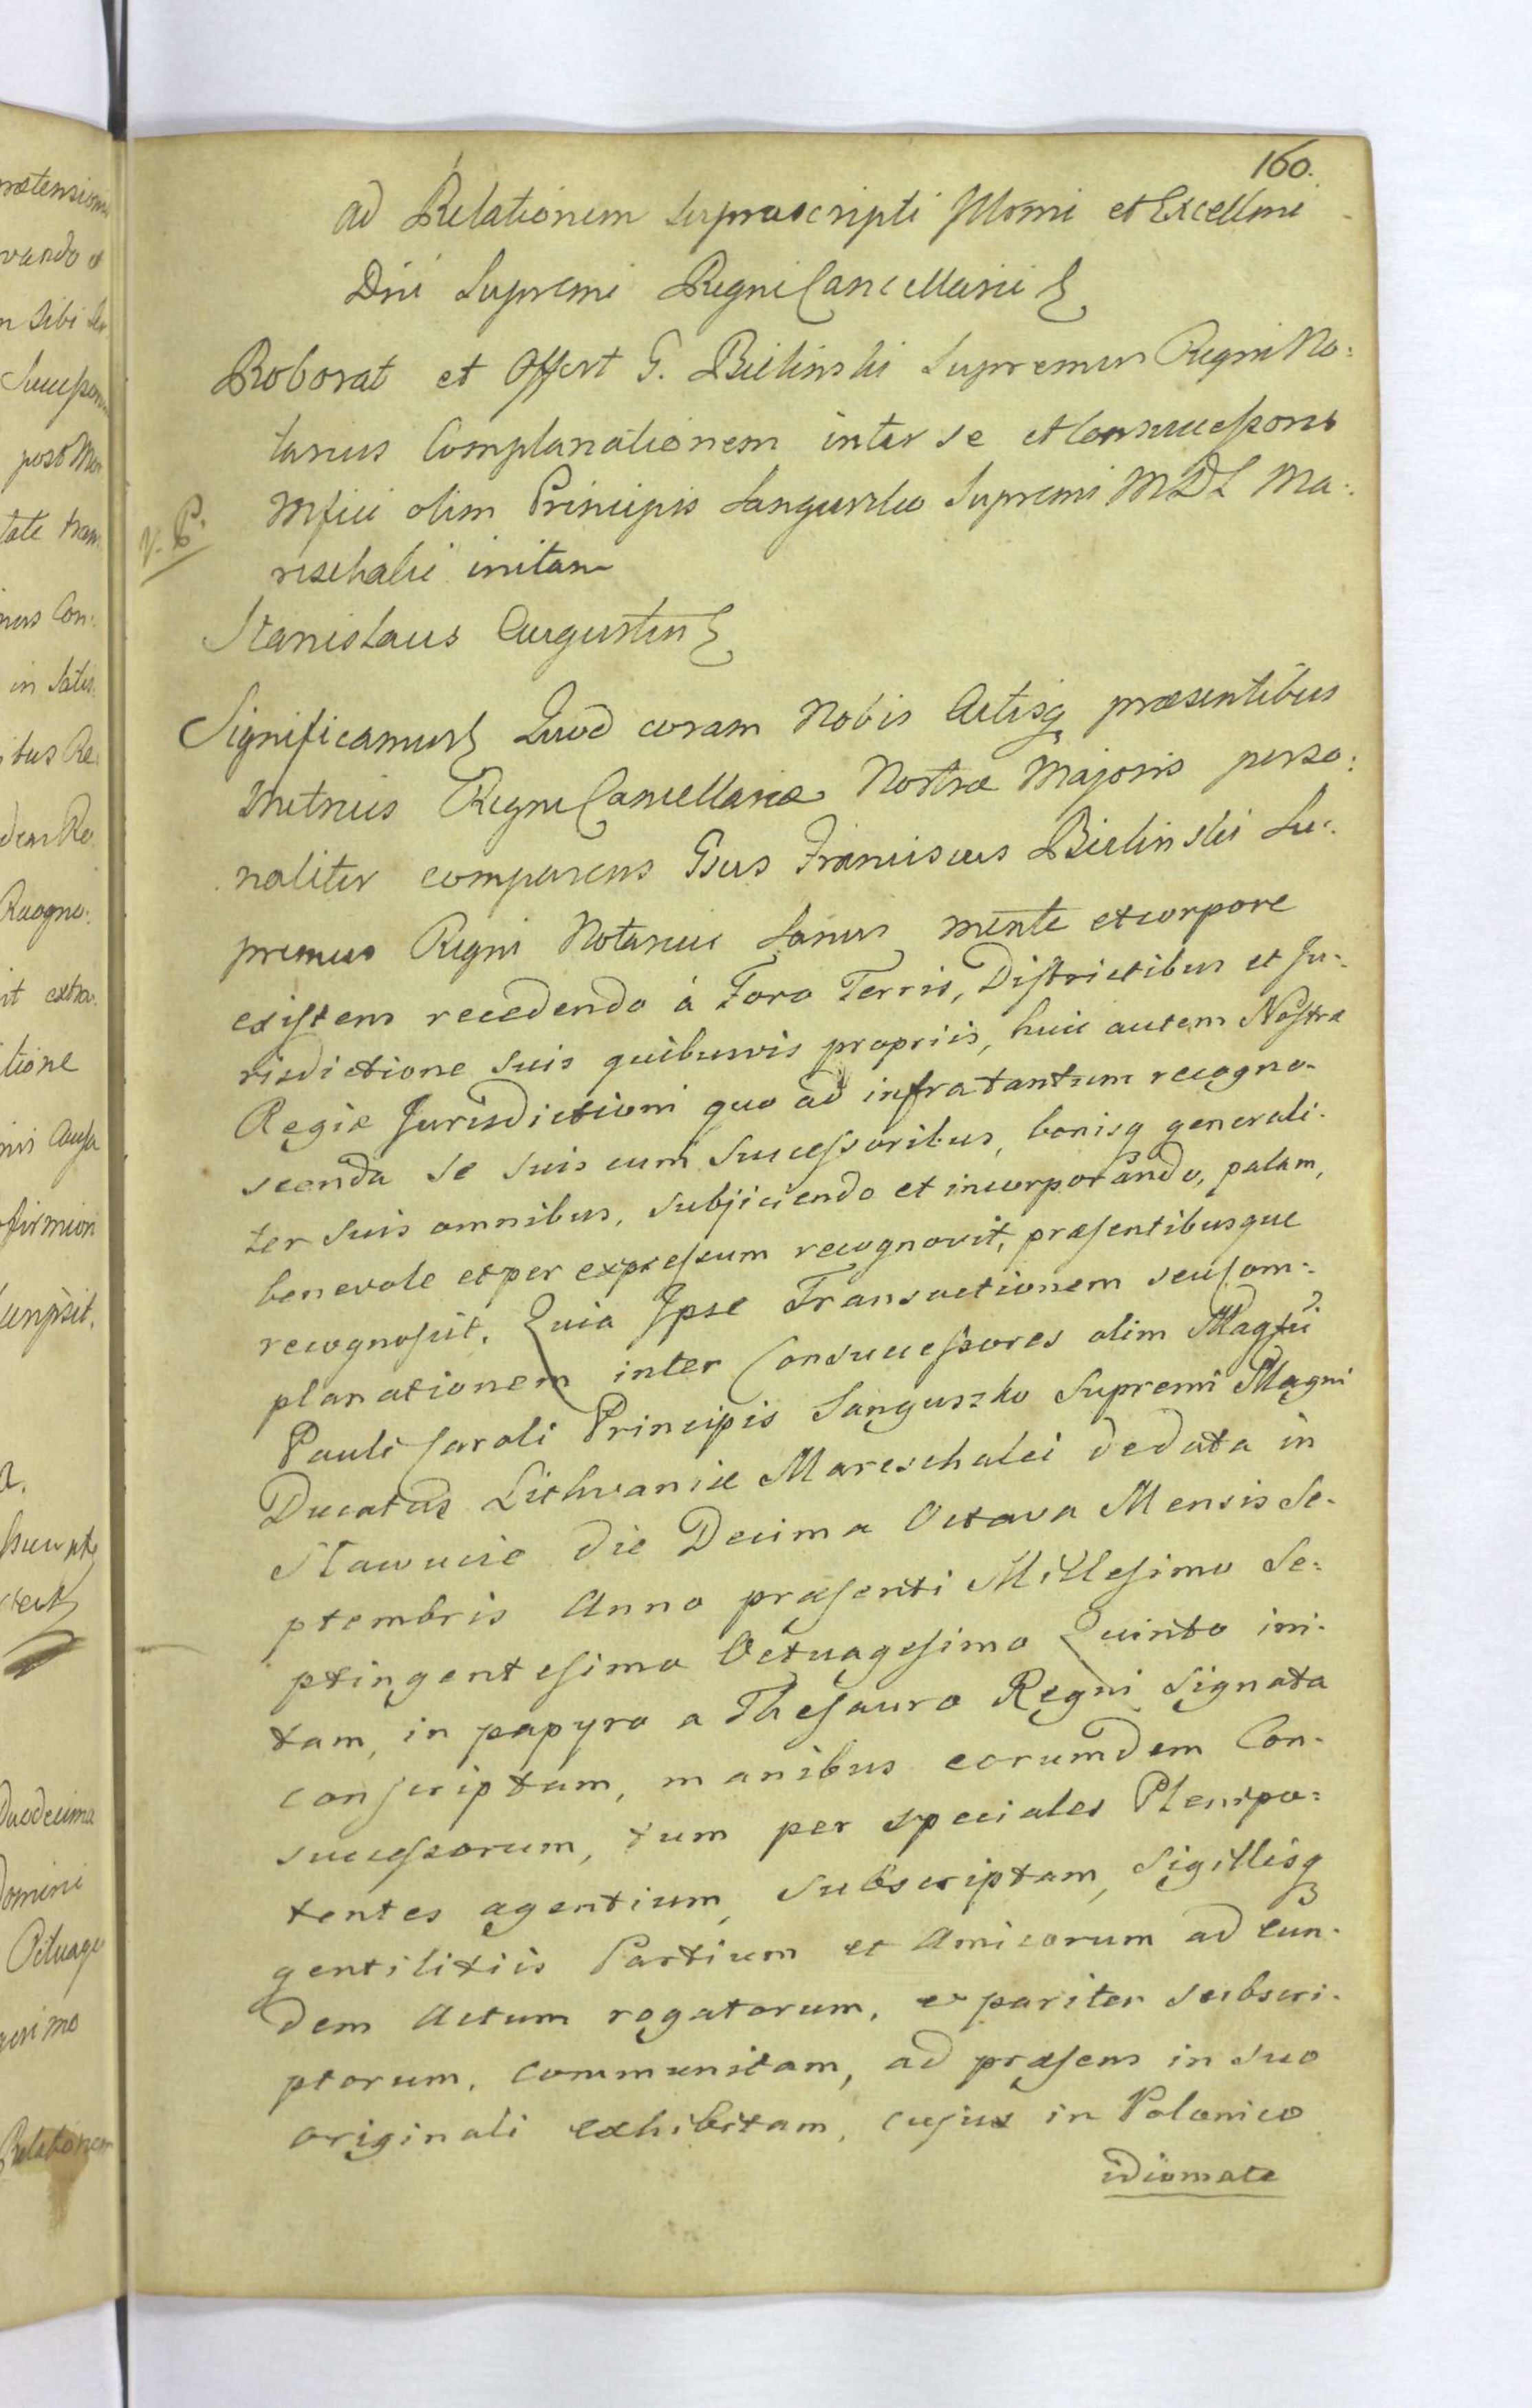 160.
ad Relationem suprascripti Illmi et Excellmi
Dni Supremi Regni Cancellarii
Roborat et Offert G. Bielinski Supremus Regni No:
tarius Complanationem inter se et Consuccessores
Mfici olim Principis Sanguszko Supremi MDL Ma:
reschalci initam
V. P.
Stanislaus Augustus
Significamus Quod coram Nobis Actisq praesentibus
Metrices Regni Cancellariae Nostrae Majoris perso:
naliter comparens Gsus Franciscus Bielinski Su:
premus Regni Notarius Sanus mente et corpore
existens recedendo à Foro Terris, Districtibus et Ju:
risdictione suis quibusvis propriis, huic autem Nostrae
Regiae Jurisdictioni quo ad infra tantum recogno-
scenda se suis cum Successoribus, bonisq generali-
ter suis omnibus, subjiciendo et incorporando, palam,
benevole et per expressum recognovit, praesentibusque
recognoscit. Quia Ipse Transactionem seu Com:
planationem inter Consuccessores olim Magfci
Pauli Caroli Principis Sanguszko Supremi Magni
Ducatus Lithvaniae Mareschalci de data in
Slawucie die Decima Octava Mensis Se-
ptembris Anno praesenti Millesimo Se:
ptingentesimo Octuagesimo Quinto ini-
tam, in papyro a Thesauro Regni signata
conscriptam, manibus eorumdem Con-
successorum, tum per speciales Plenipo:
tentes agentium, subscriptam, Sigillisq
gentilitiis Partium et Amicorum ad eun-
dem Actum rogatorum, et pariter subscri-
ptorum, communitam, ad praesens in suo
originali exhibitam, cujus in Polonico
idiomate